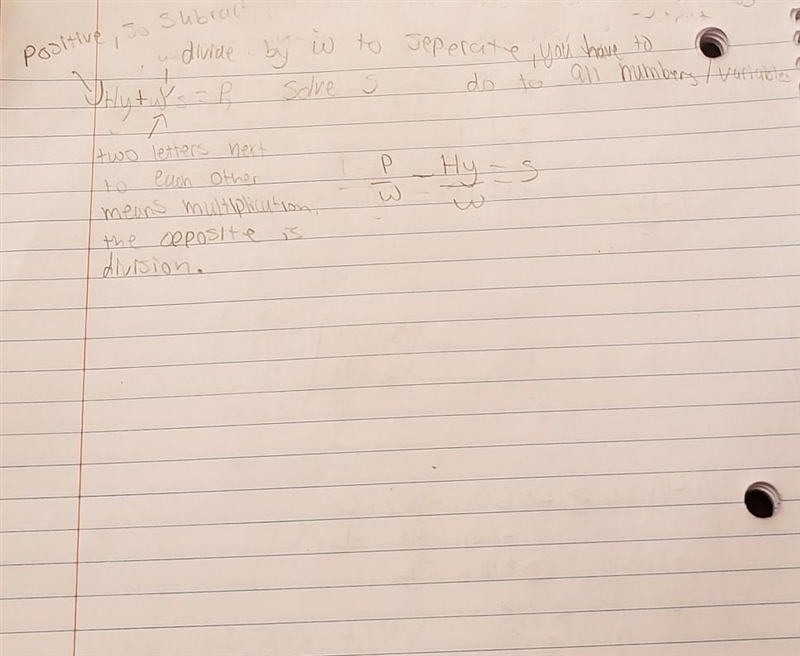 Positive, so subract
divide by w to seperate, you have to
Hy + ws = P, solve S do to all numbers/variables
two letters next
to each other
means multiplication.
the opposite is
division.
P/w - Hy/w = s